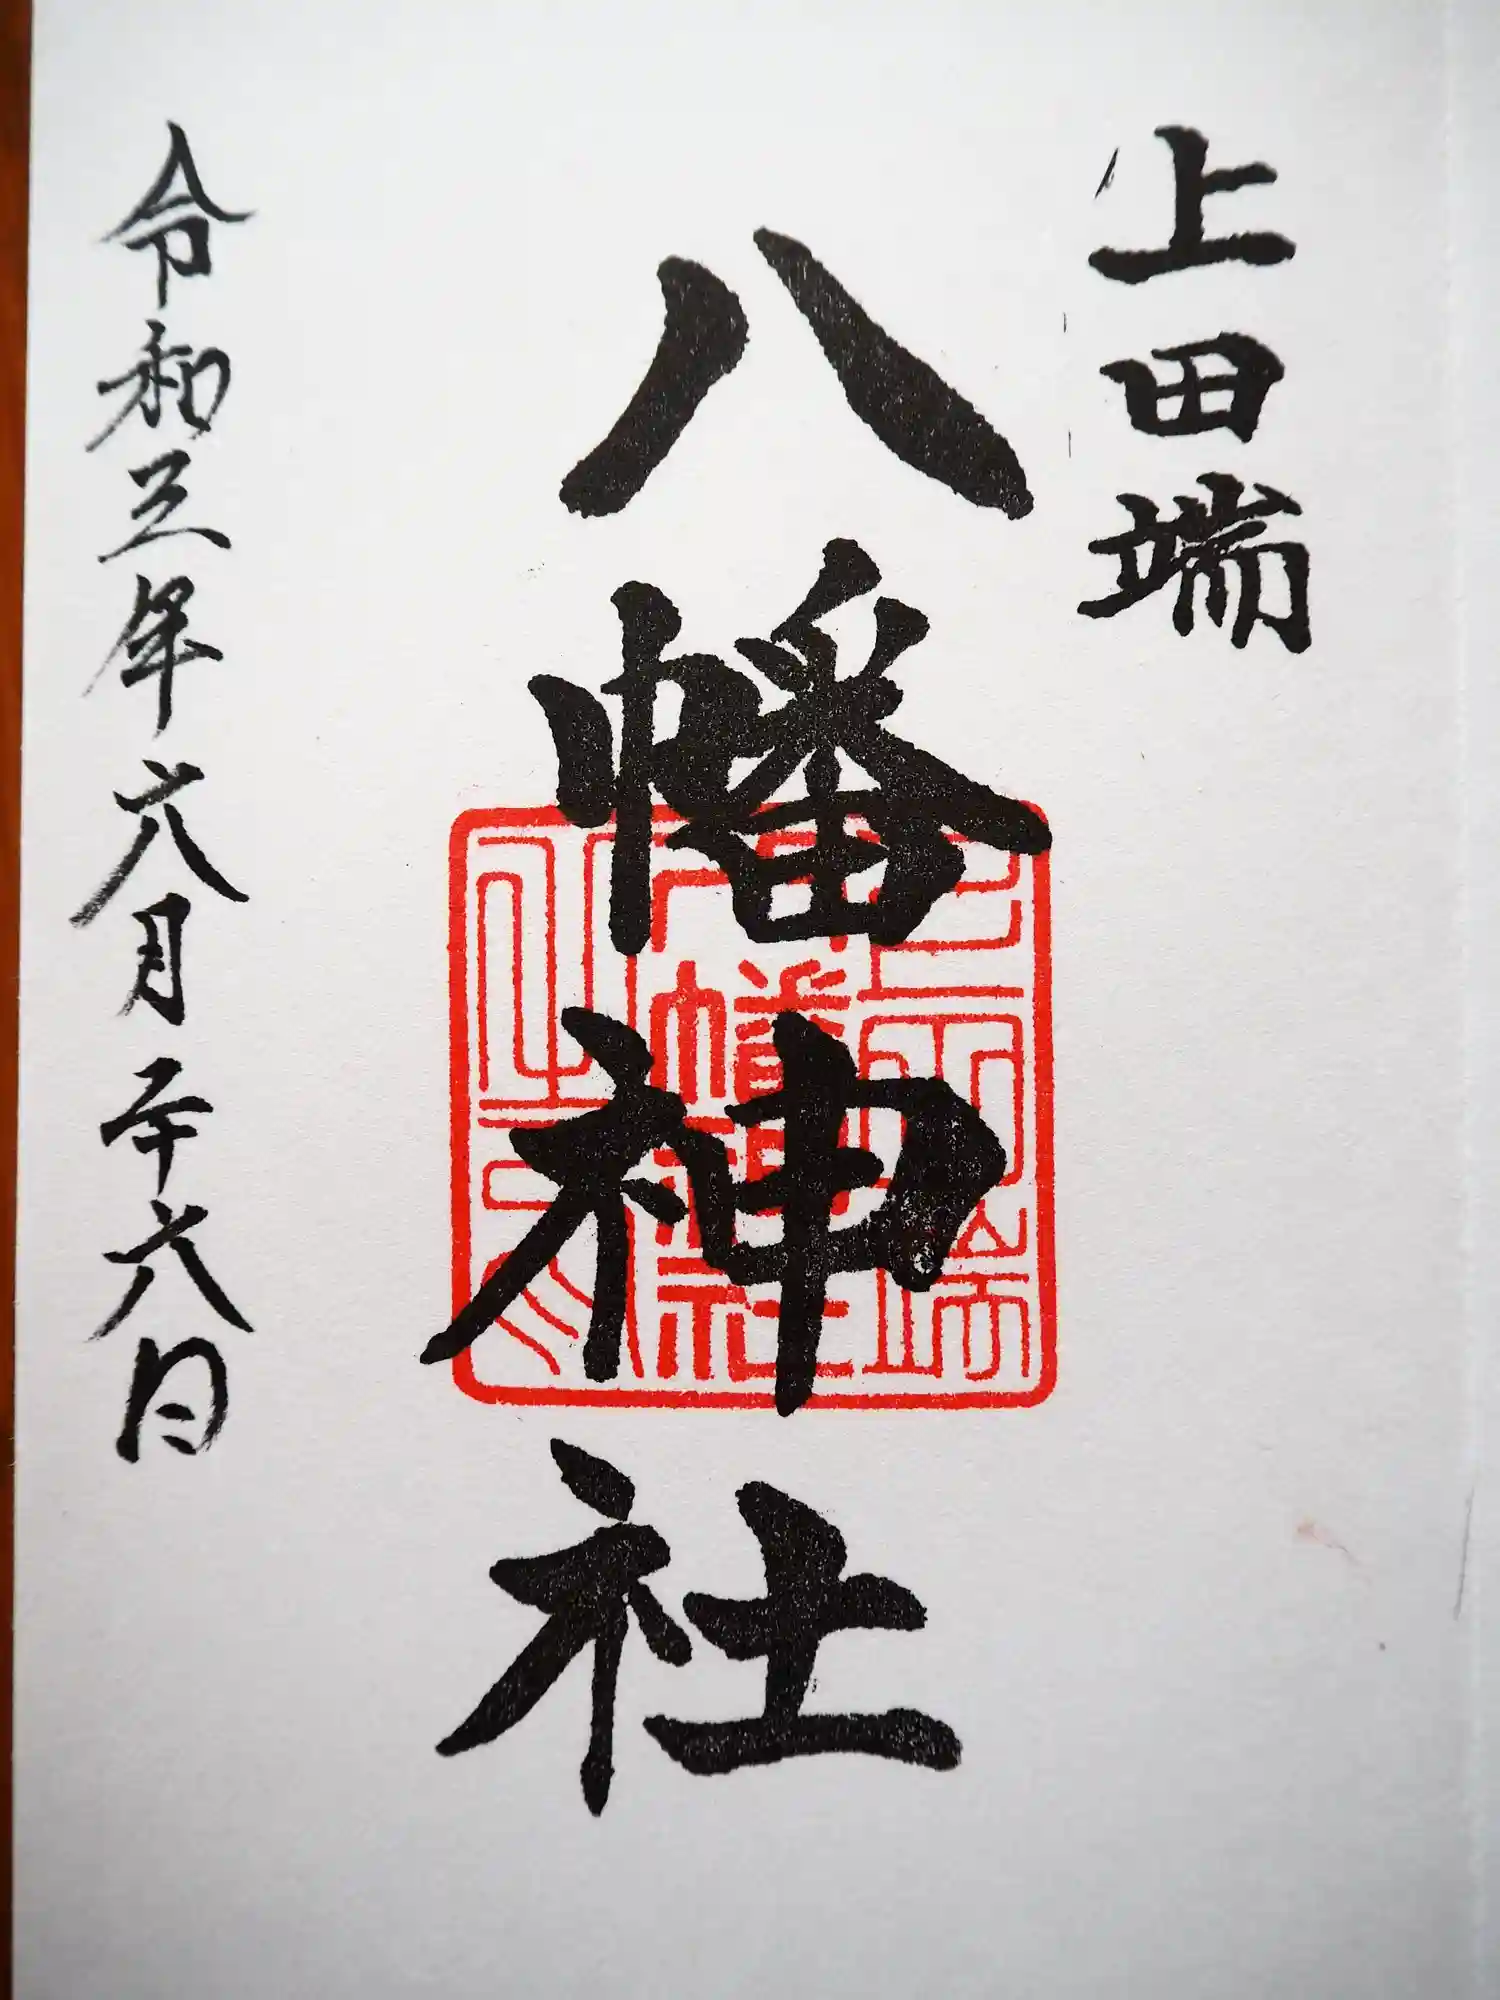 上田端
八幡神社
上田端
八幡神社
之印
令和三年六月二十六日